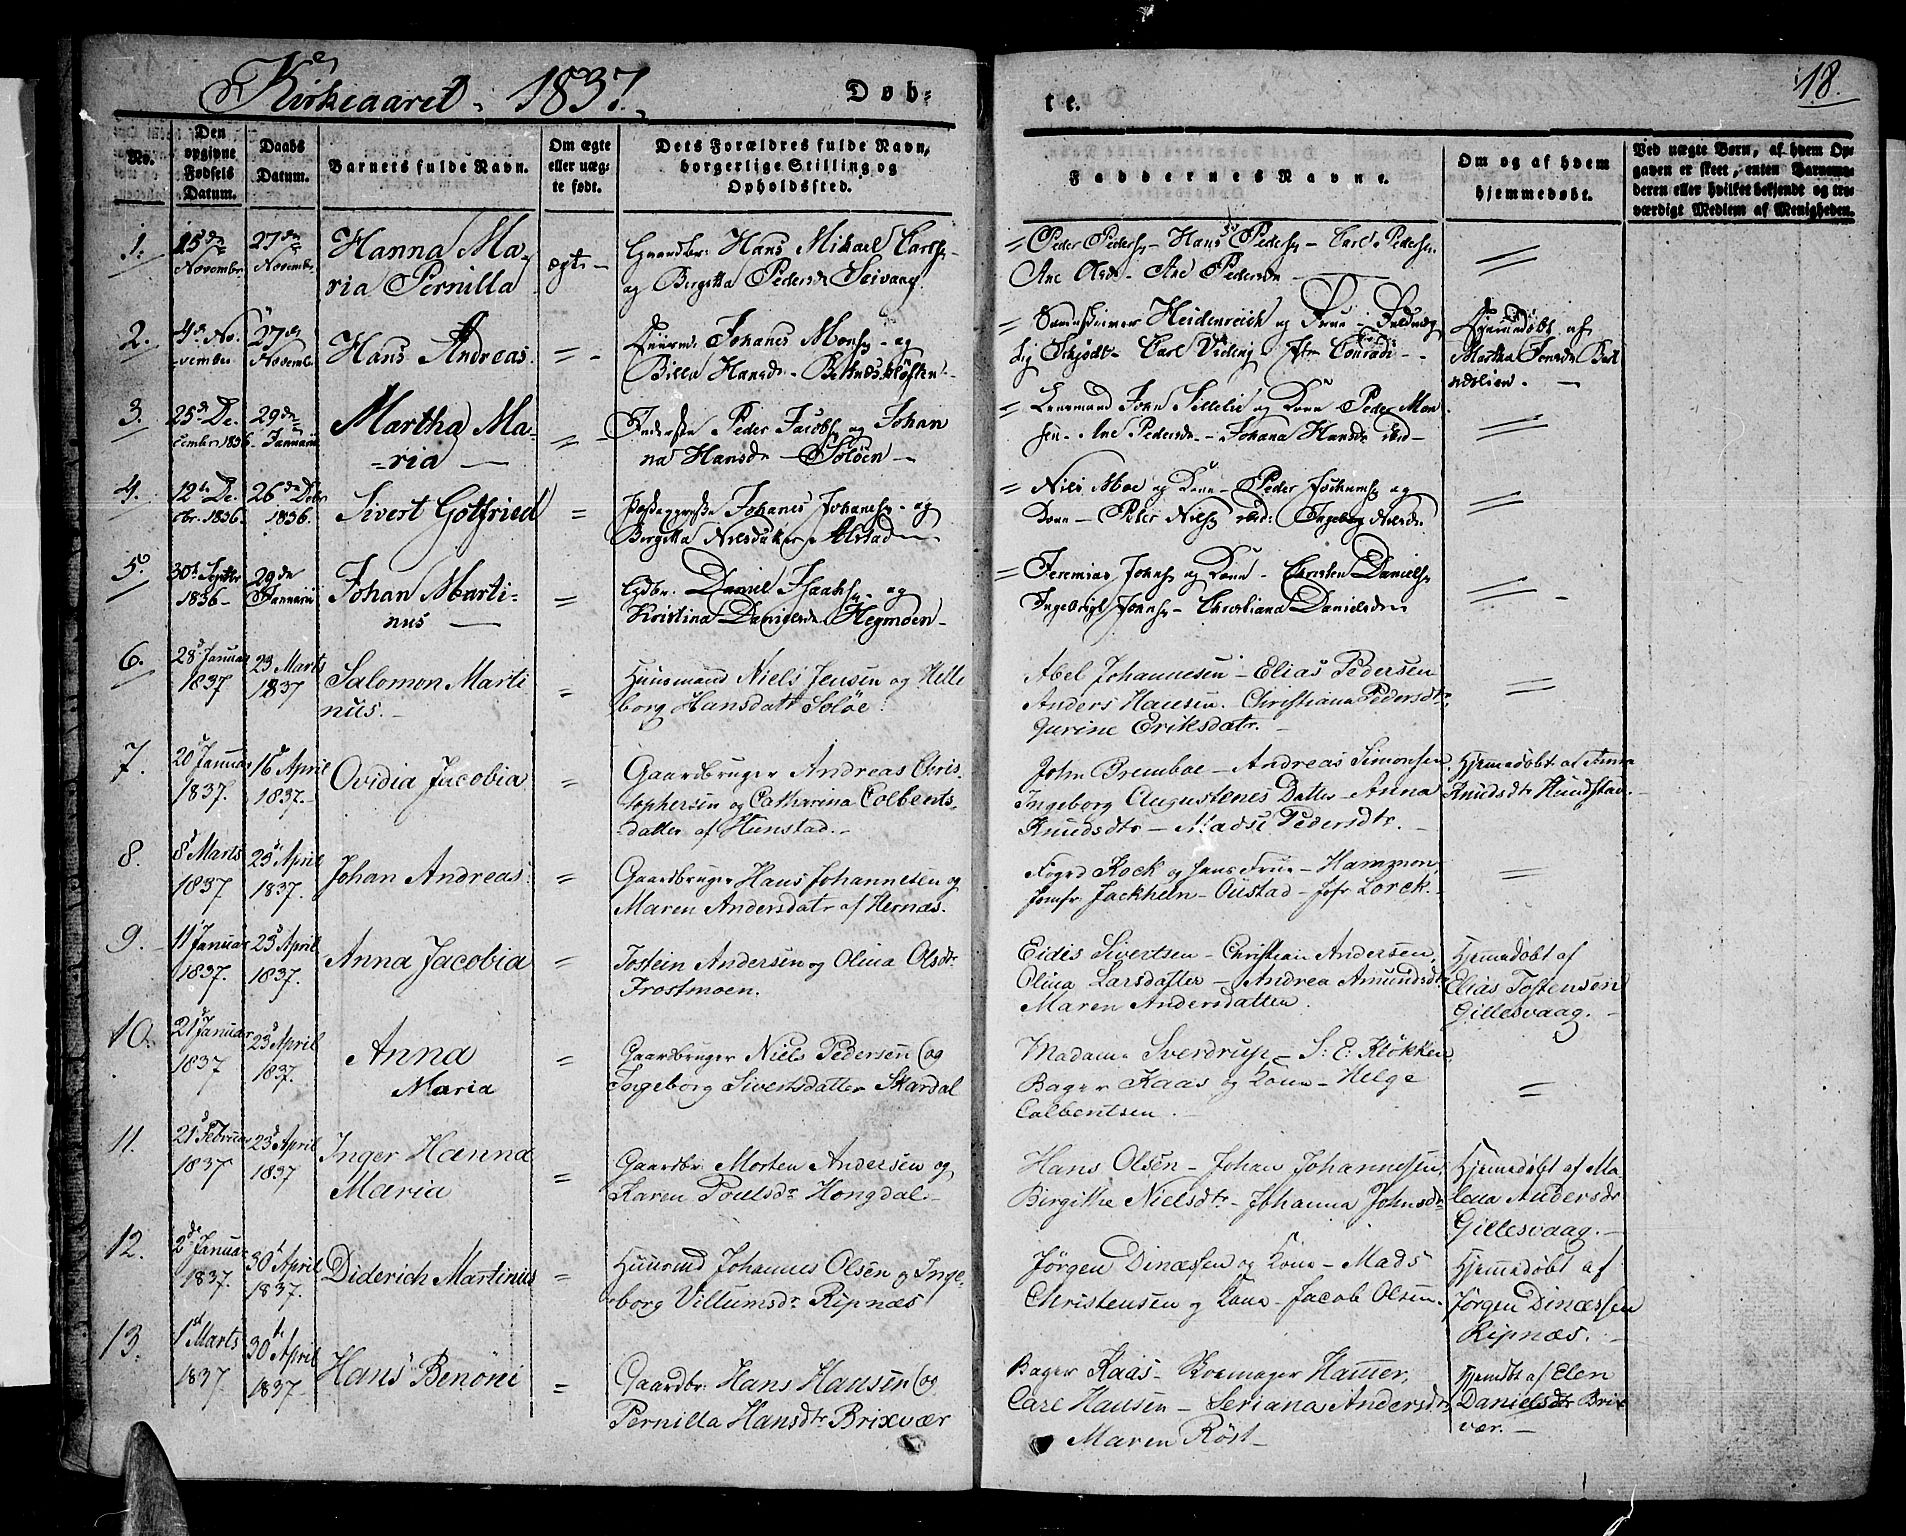 Kirkeaaret 1837.
Døb-
te.
18.
No.
Den opgivne Fødsels Datum.
Daabs Datum.
Barnets fulde Navn.
Om ægte eller uægte født.
Dets Forældres fulde Navn, borgerlige Stilling og Opholdssted.
Faddernes Navne.
Om og af hvem hjemmedøbt.
Ved uægte Børn, af hvem Opgaven er skeet, enten Barnemoderen eller hvilket bekjendt og troværdigt Medlem af Menigheden.
1.
15de Novembr
27de Novembr
Hanna Ma-
ria Pernilla
ægte
Gaardbr: Hans Mikael Carls
og Birgitta Pedersd Seivaag
= Peder Peders - Hans Peders - Carl Peders
Ane Olsd - Ane Pedersd
=
2.
4de No-
vember
27de Novemb
Hans Andreas.
=
Johanes Mons - og
Billa Hansdr -
= Sorenskriver Heidenreich og Frue -
Schjødt - Carl - Jfr Conradi -
Hjemmedøbt af
Martha Jensdr
3.
25de De-
cember 1836
29de Januarii
Martha Ma-
ria
=
Peder Jacobs og Johan
na Hansdr - Soløen -
= Lensmand John Sillelie og Kone Peder Mon
sen - Ane Pedersdr - Johana Hansdr ibid -
=
4.
12te De-
cbr. 1836
26de Decbr 1836.
Sivert Gotfried
=
Johanes Johans - og
Birgitta Nielsdatter Alstad
= Niels Moe og Kone - Peder Jochums og
Kone - Peter Niels ibid: Ingeborg Nielsdr
=
5.
30te Septbr 1836
29de Januarii
Johan Marti-
nus
=
Gdbr. Daniel Isaaks - og
Kristina Danielsdr Hegmoen -
= Jeremias Johns og Kone - Christen Daniels
Ingebrigt Johns - Christiana Danielsdr
=
6.
28d Januar 1837
23 Marts 1837
Salomon Marti
nus.
=
Huusmand Niels Jensen og Helle
borg Hansdatr Soløe.
Abel Johannesen - Elias Pedersen
Anders Hansen. Christiana Pedersdtr.
Gurine Eriksdatr.
=
7.
20d Januar 1837.
16d April 1837.
Ovidia Jacobia
=
Gaardbruger Andreas Chris-
tophersen og Catharina Colbents-
datter af Hunstad.
John Bremboe - Andreas Simonsen.
Ingeborg Augustenes Datter - Anna
Knudsdtr - Madse Pedersdtr.
Hjemedøbt af Anna
Knudsdtr Hundstad.
8.
8d Marts 1837.
23d April 1837.
Johan Andreas
=
Gaardbruger Hans Johannesen og
Maren Andersdatr af Hernæs.
Foged Kock og hans Frue - Hammon,
Jomfr. Jackheln - Oustad - Jofr Lorck.
=
9.
11 Januar 1837.
23d April 1837.
Anna Jacobia
=
Tostein Andersen og Olina Olsdtr
Trostmoen.
Eidis Sivertsen - Christian Andersen,
Olina Larsdatter - Andrea Amundsdtr
Maren Andersdatter.
Hjemedøbt af
Elias Tostensen
Gillesvaag.
10.
21d Januar 1837
23d April 1837.
Anna
Maria
=
Gaardbruger Niels Pedersen og
Ingeborg Sivertsdatter Skardal
Madame Sverdrup - S: E: Kløkken
Bager Kaas og Kone - Helge
Colbentsen.
=
11.
21d Februar 1837
23d April 1837
Inger Hanna
Maria
=
Gaardbr. Morten Andersen og
Karen Poulsdr Hongdal.
Hans Olsen - Johan Johannesen,
Birgithe Nielsdtr - Johanna Johnsdr
Hjemedøbt af Ma
lena Andersdr
Gillesvaag.
12.
2de Januar 1837.
30te April 1837.
Diderich Martinus
=
Huusmd Johannes Olsen og Inge-
borg Villumsdr Ripnæs
Jørgen Dinæssen og Kone - Mads
Christensen og Kone - Jacob Olsen.
Hjemedøbt af
Jørgen Dinæssen
Ripnæs.
13.
1st Marts 1837.
30te April 1837.
Hans Benoni
=
Gaardbr: Hans Hansen og
Pernilla Hansdtr Brixvær
Bager Kaas - Skomager Hatter,
Carl Hansen - Seriana Andersdtr
Maren Röst
Hjemdt af Elen
Danielsdtr Brix
vær.